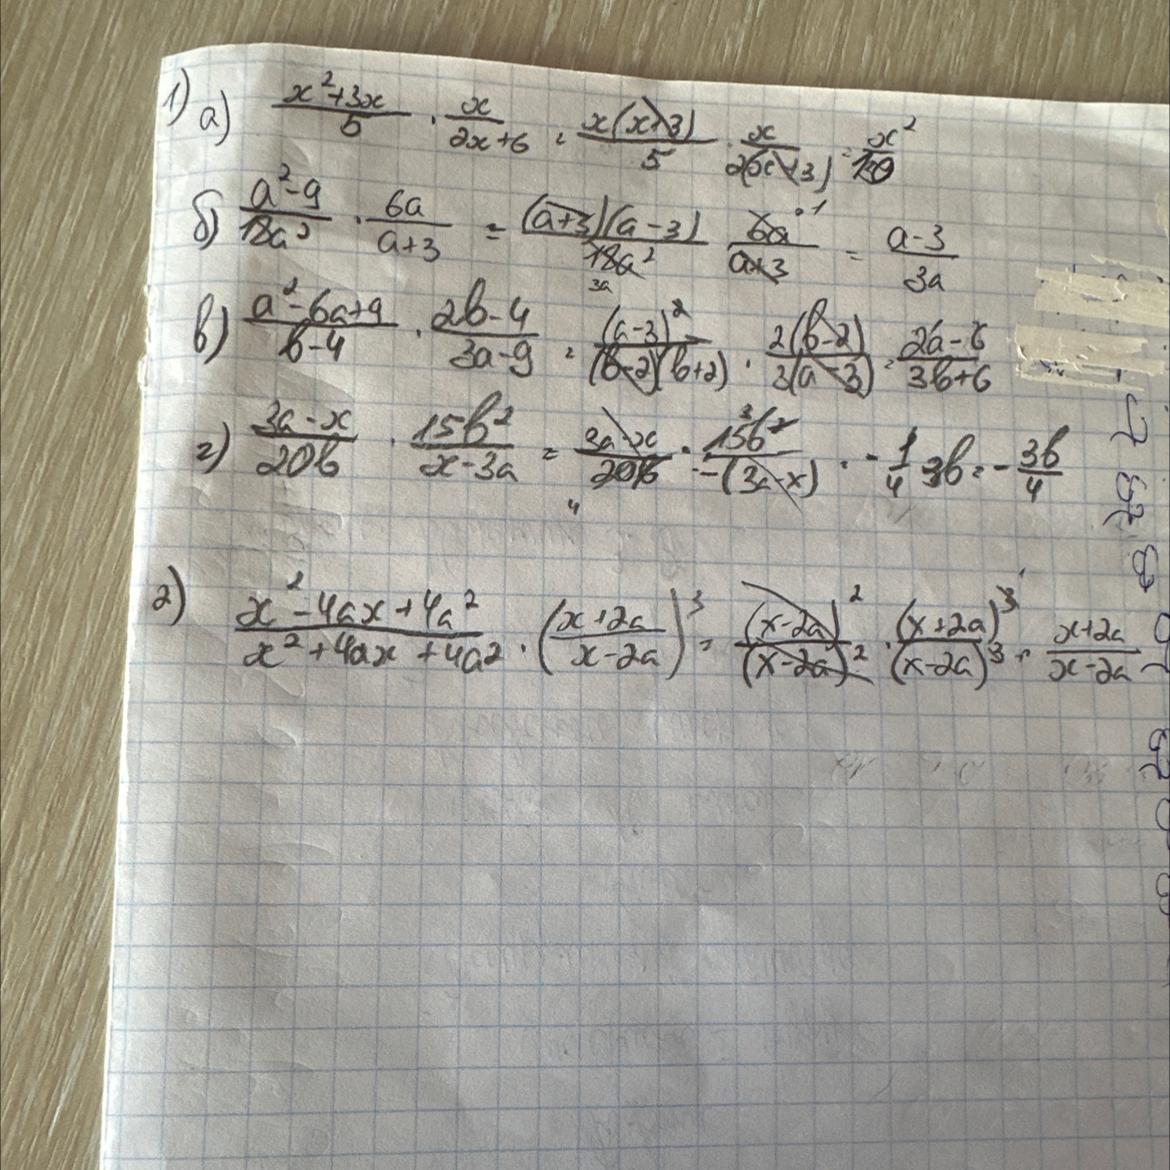 1) а) (x²+3x)/5 · x/(2x+6) = x(x+3)/5 · x/(2(x+3)) = x²/10
б) (a²-9)/(18a²) · 6a/(a+3) = (a+3)(a-3)/(18a²) · 6a/(a+3) = (a-3)/(3a)
в) (a²-6a+9)/(b-4) · (2b-4)/(3a-9) = (a-3)²/((b-2)(b+2)) · 2(b-2)/(3(a-3)) = (2a-6)/(3b+6)
г) (3a-x)/(20b) · 15b²/(x-3a) = (3a-x)/(20b) · 15b²/(-(3a-x)) = -1/4 · 3b = -3b/4
2) (x²-4ax+4a²)/(x²+4ax+4a²) · ((x+2a)/(x-2a))³ = (x-2a)²/(x-2a)² · (x+2a)³/(x-2a)³ = (x+2a)/(x-2a)